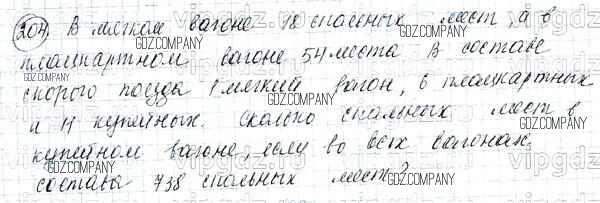 204. В мягком вагоне 18 спальных мест, а в
плацкартном вагоне 54 места В составе
скорого поезда 1 мягкий вагон, 6 плацкартных
и 11 купейных. Сколько спальных мест в
купейном вагоне, если во всех вагонах
состава 738 спальных мест?
GDZ.COMPANY
GDZ.COMPANY
GDZ.COMPANY
GDZ.COMPANY
GDZ.COMPANY
GDZ.COMPANY
GDZ.COMPANY